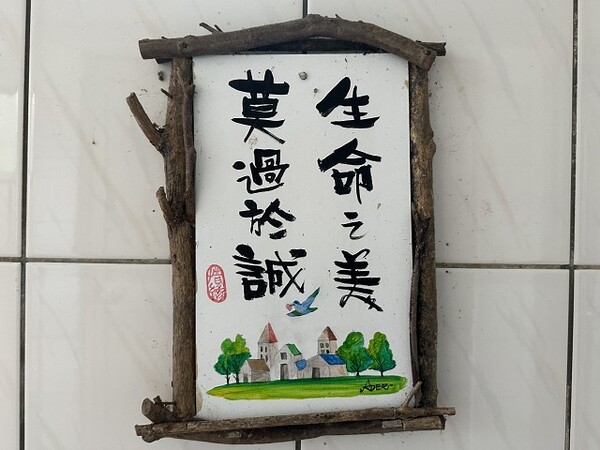 生命之美
莫過於誠